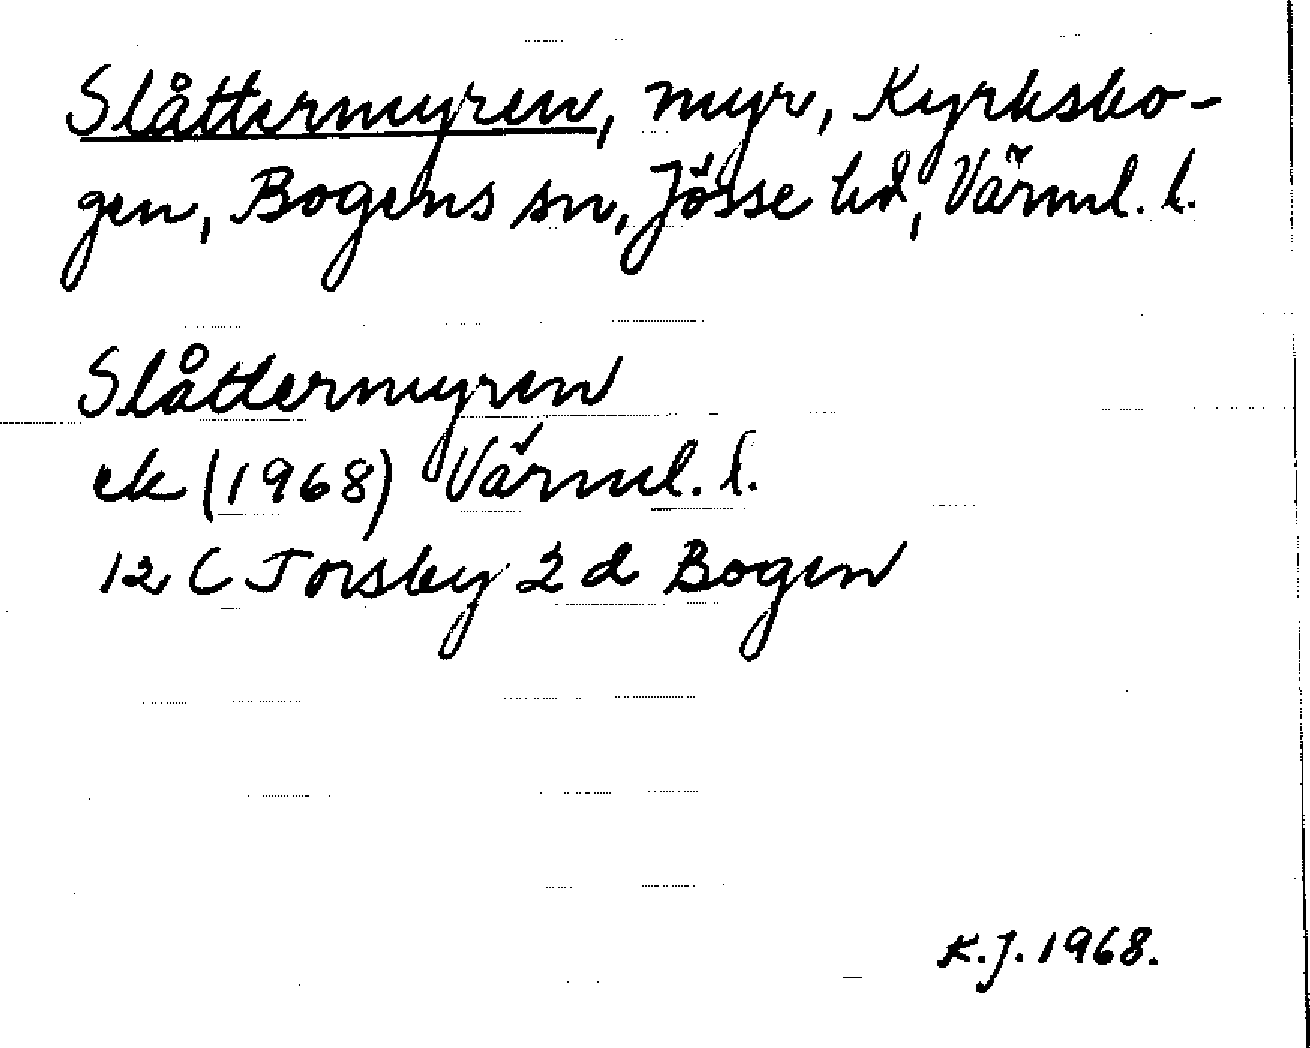 Slåttermyren, myr, Kyrksko-
gen, Bogens sn, Jösse hd, Värml. l.
Slåttermyren
ek (1968) Värml. l.
12 C Torsby 2 d Bogen
K.J. 1968.